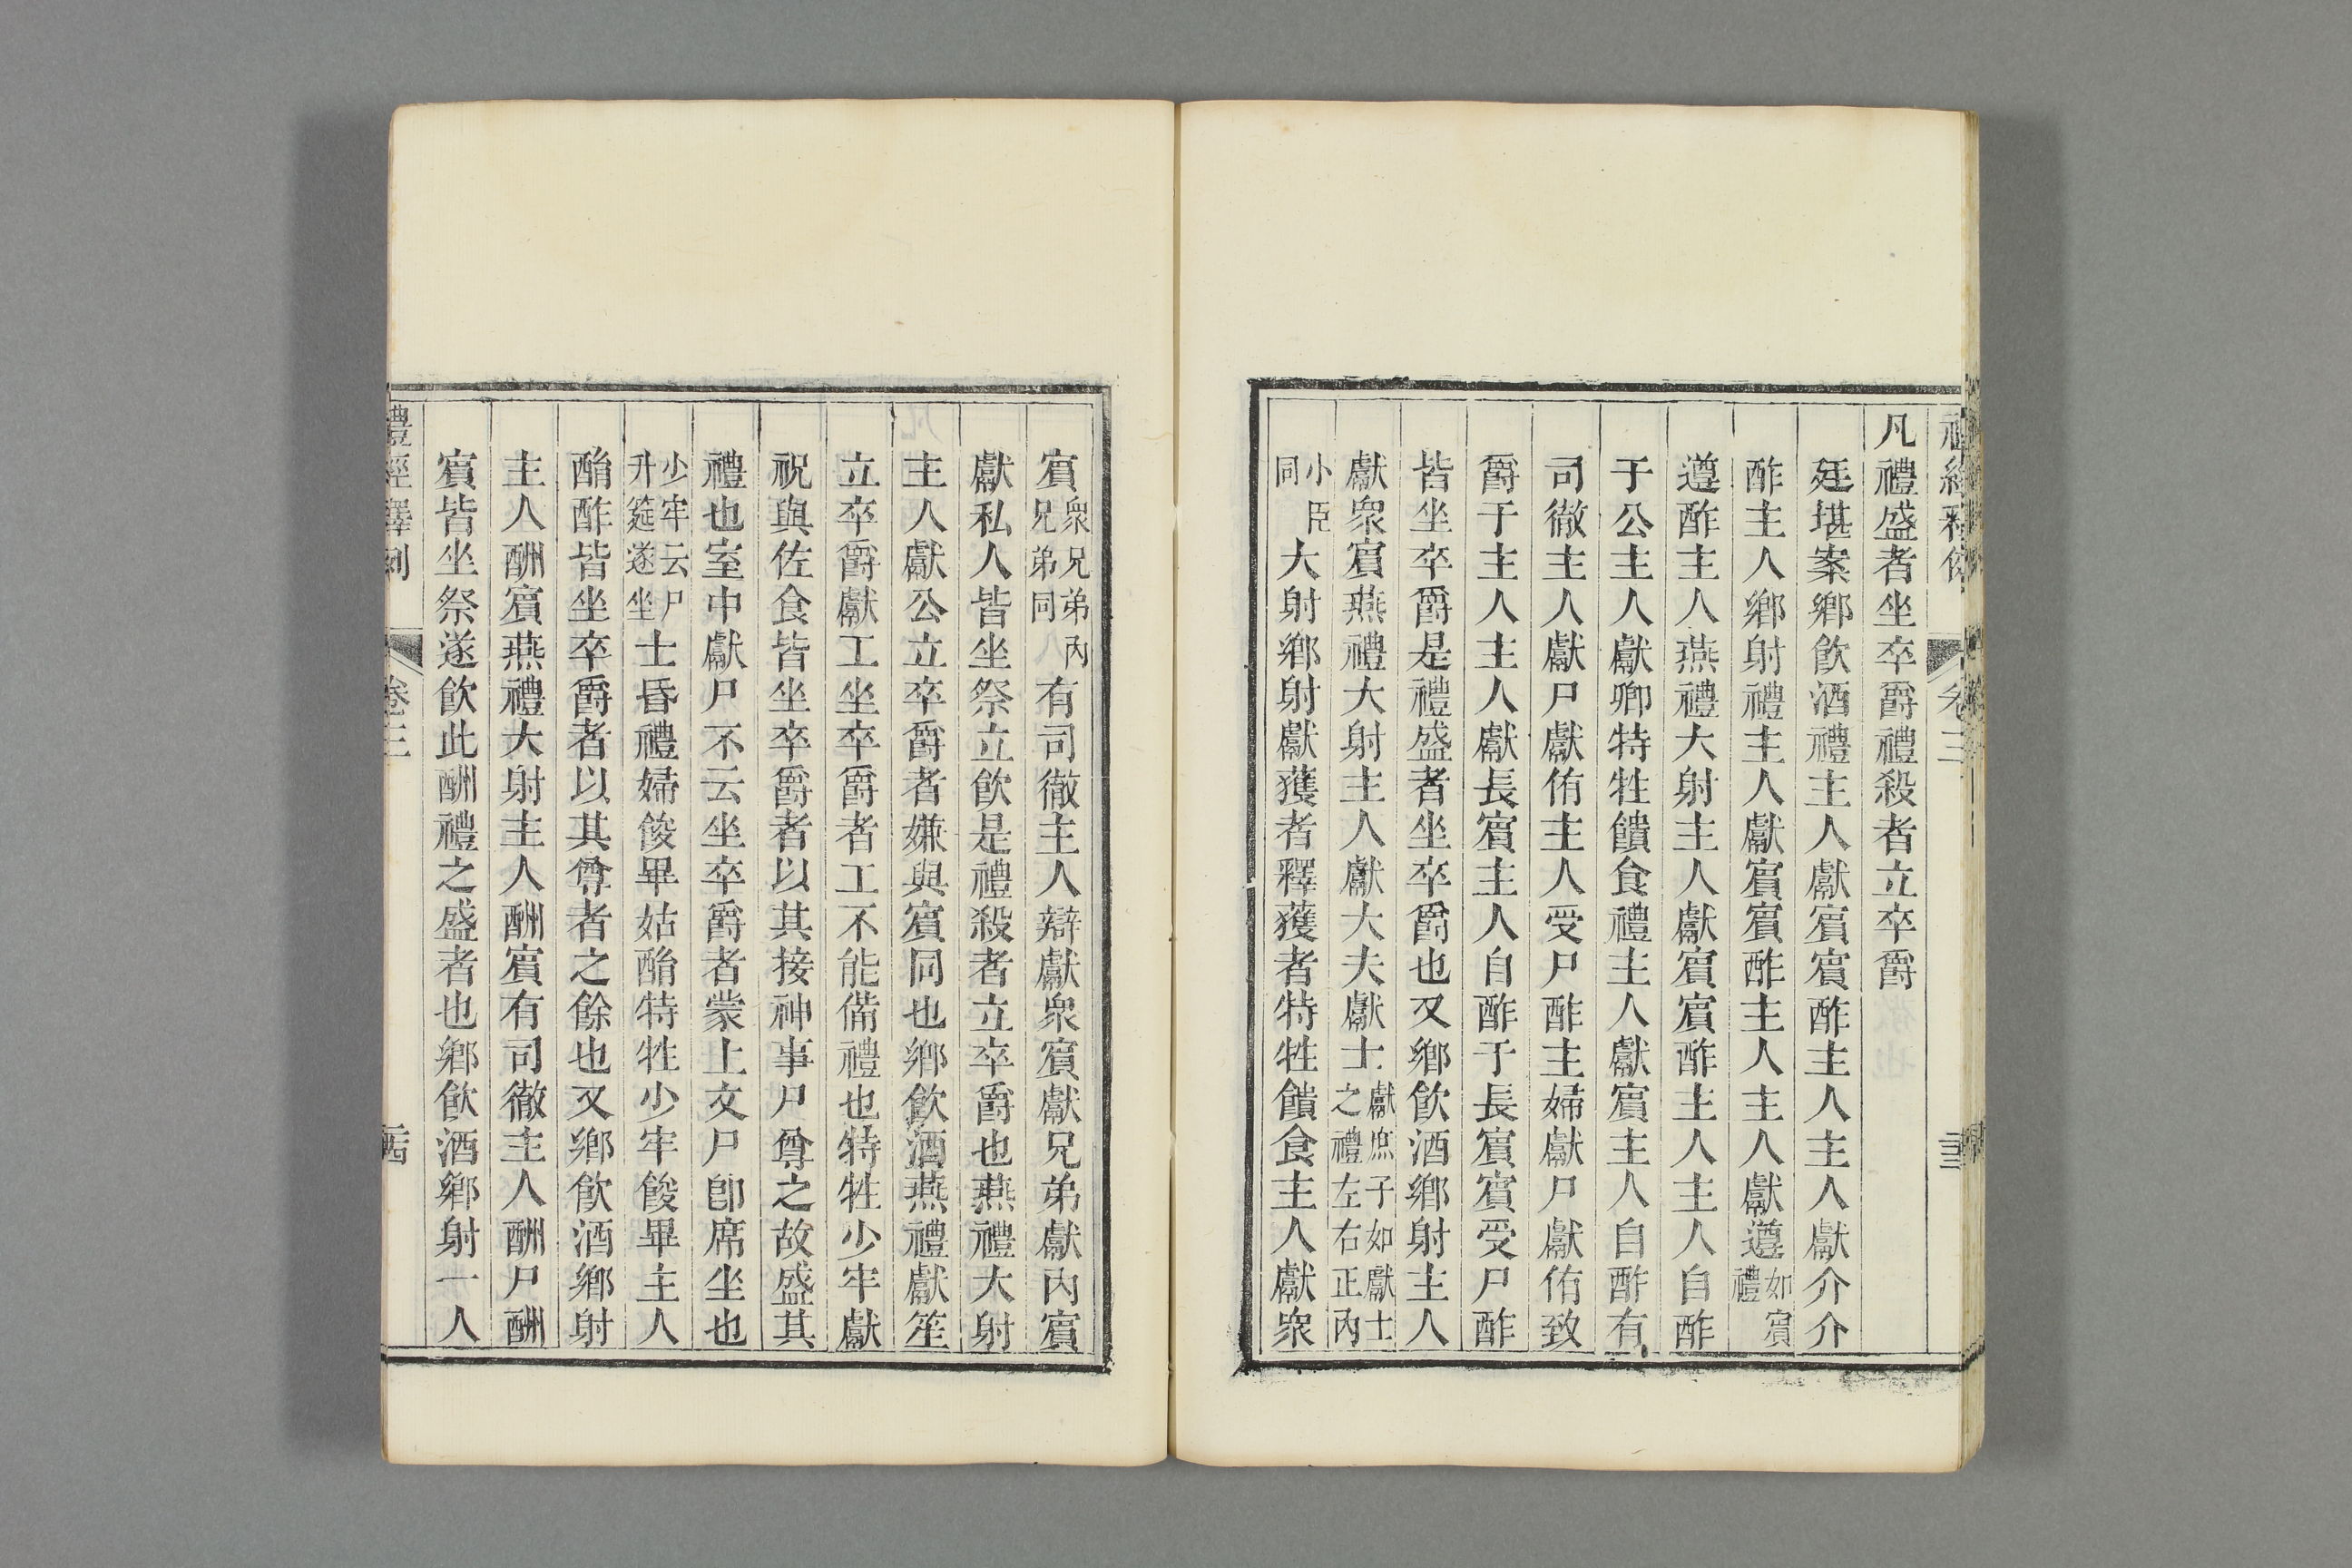 凡禮盛者坐卒爵禮殺者立卒爵
廷堪案鄉飲酒禮主人獻賓賓酢主人主人獻介介
酢主人鄉射禮主人獻賓賓酢主人主人獻遵如賓禮
遵酢主人燕禮大射主人獻賓賓酢主人主人自酢
于公主人獻卿特牲饋食禮主人獻賓主人自酢有
司徹主人獻尸獻侑主人受尸酢主婦獻尸獻侑致
爵于主人主人獻長賓主人自酢于長賓賓受尸酢
皆坐卒爵是禮盛者坐卒爵也又鄉飲酒鄉射主人
獻衆賓燕禮大射主人獻大夫獻士獻庶子如獻士之禮左右正內
小臣同大射鄉射獻獲者釋獲者特牲饋食主人獻衆
賓衆兄弟內兄弟同有司徹主人辯獻衆賓獻兄弟獻內賓
獻私人皆坐祭立飲是禮殺者立卒爵也燕禮大射
主人獻公立卒爵者嫌與賓同也鄉飲酒燕禮獻笙
立卒爵獻工坐卒爵者工不能備禮也特牲少牢獻
祝與佐食皆坐卒爵者以其接神事尸尊之故盛其
禮也室中獻尸不云坐卒爵者蒙上文尸卽席坐也
少牢云尸升筵遂坐士昏禮婦餕畢姑酳特牲少牢餕畢主人
酳酢皆坐卒爵者以其尊者之餘也又鄉飲酒鄉射
主人酬賓燕禮大射主人酬賓有司徹主人酬尸酬
賓皆坐祭遂飲此酬禮之盛者也鄉飲酒鄉射一人
禮經釋例 卷三